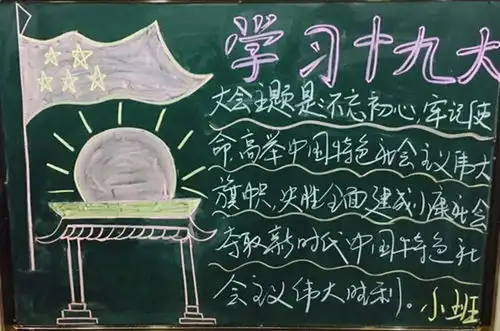 学习十九大
大会主题是:不忘初心,牢记使
命,高举中国特色社会主义伟大
旗帜,决胜全面建成小康社会
夺取新时代中国特色社
会主义伟大胜利。
小班